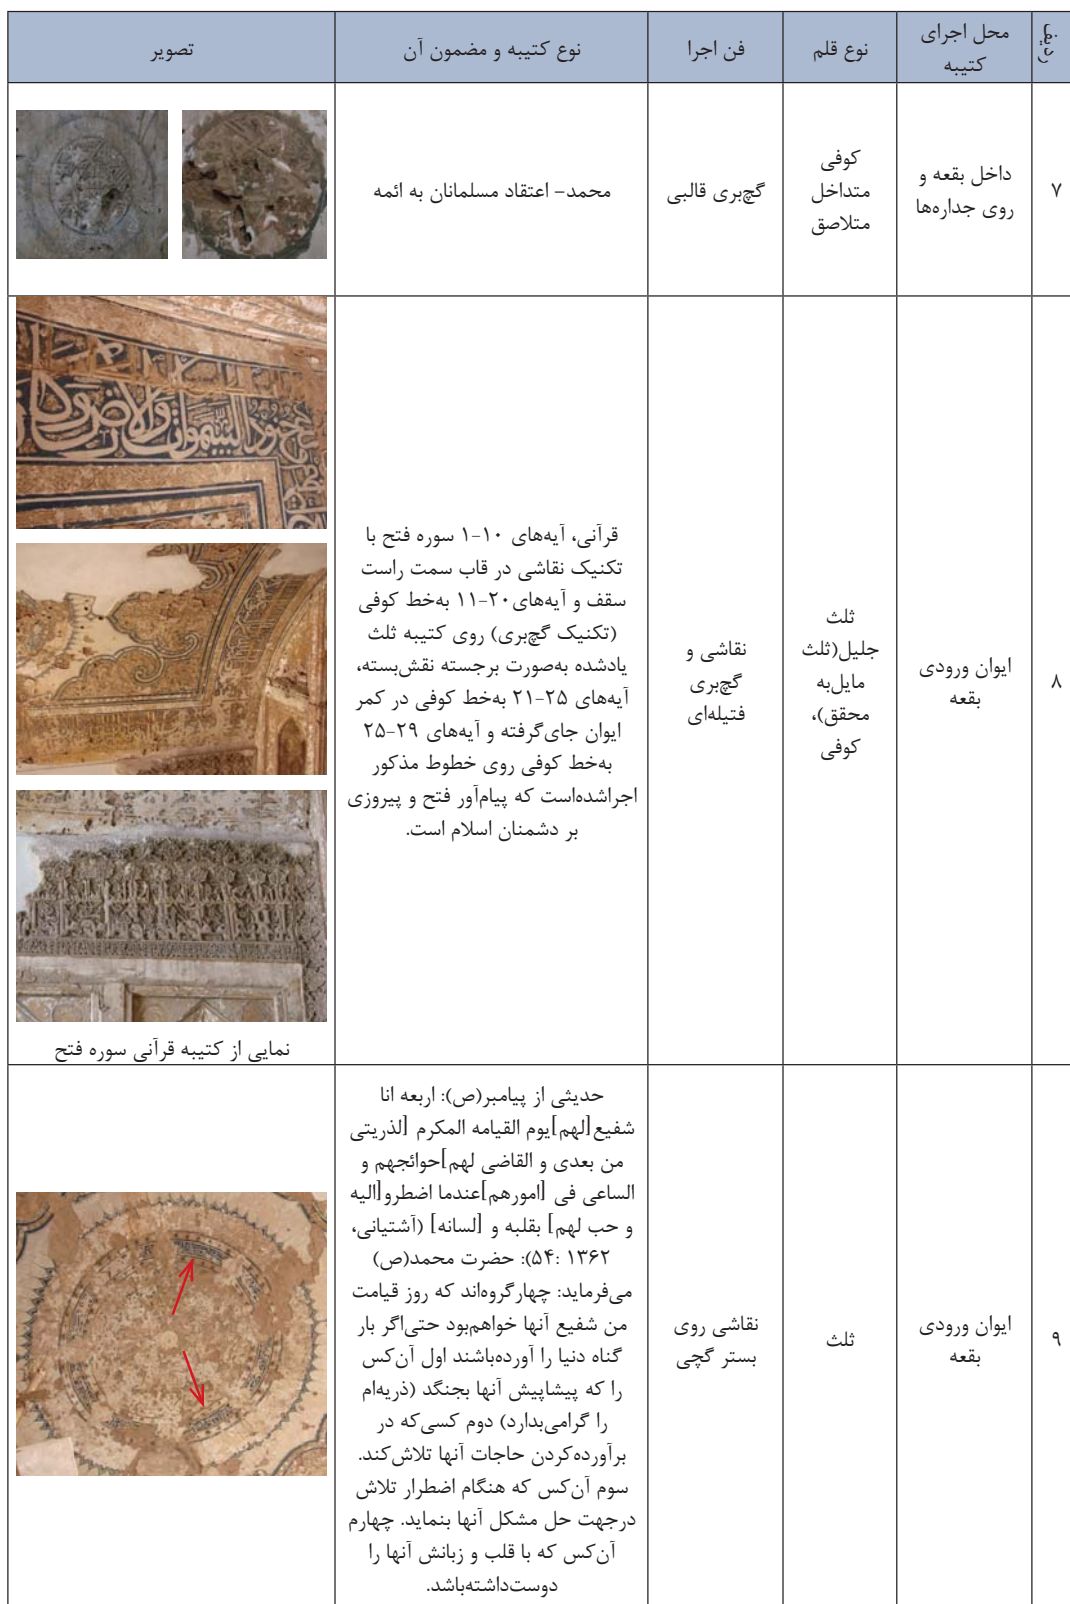 ردیف
محل اجرای
کتیبه
نوع قلم
فن اجرا
نوع کتیبه و مضمون آن
تصویر
۷
داخل بقعه و
روی جدارهها
کوفی
متداخل
متلاصق
گچبری قالبی
محمد- اعتقاد مسلمانان به ائمه
۸
ایوان ورودی
بقعه
ثلث
جلیل(ثلث
مایلبه
محقق)،
کوفی
نقاشی و
گچبری
فتیلهای
قرآنی، آیههای ۱۰-۱ سوره فتح با
تکنیک نقاشی در قاب سمت راست
سقف و آیههای۲۰-۱۱ بهخط کوفی
(تکنیک گچبری) روی کتیبه ثلث
یادشده بهصورت برجسته نقشبسته،
آیههای ۲۵-۲۱ بهخط کوفی در کمر
ایوان جایگرفته و آیههای ۲۹-۲۵
بهخط کوفی روی خطوط مذکور
اجراشدهاست که پیامآور فتح و پیروزی
بر دشمنان اسلام است.
نمایی از کتیبه قرآنی سوره فتح
۹
ایوان ورودی
بقعه
ثلث
نقاشی روی
بستر گچی
حدیثی از پیامبر(ص): اربعه انا
شفیع[لهم]یوم القیامه المکرم [لذریتی
من بعدی و القاضی لهم]حوائجهم و
الساعی فی [امورهم]عندما اضطرو[الیه
و حب لهم] بقلبه و [لسانه] (آشتیانی،
۱۳۶۲ :۵۴): حضرت محمد(ص)
میفرماید: چهارگروهاند که روز قیامت
من شفیع آنها خواهمبود حتیاگر بار
گناه دنیا را آوردهباشند اول آنکس
را که پیشاپیش آنها بجنگد (ذریهام
را گرامیبدارد) دوم کسیکه در
برآوردهکردن حاجات آنها تلاشکند.
سوم آنکس که هنگام اضطرار تلاش
درجهت حل مشکل آنها بنماید. چهارم
آنکس که با قلب و زبانش آنها را
دوستداشتهباشد.